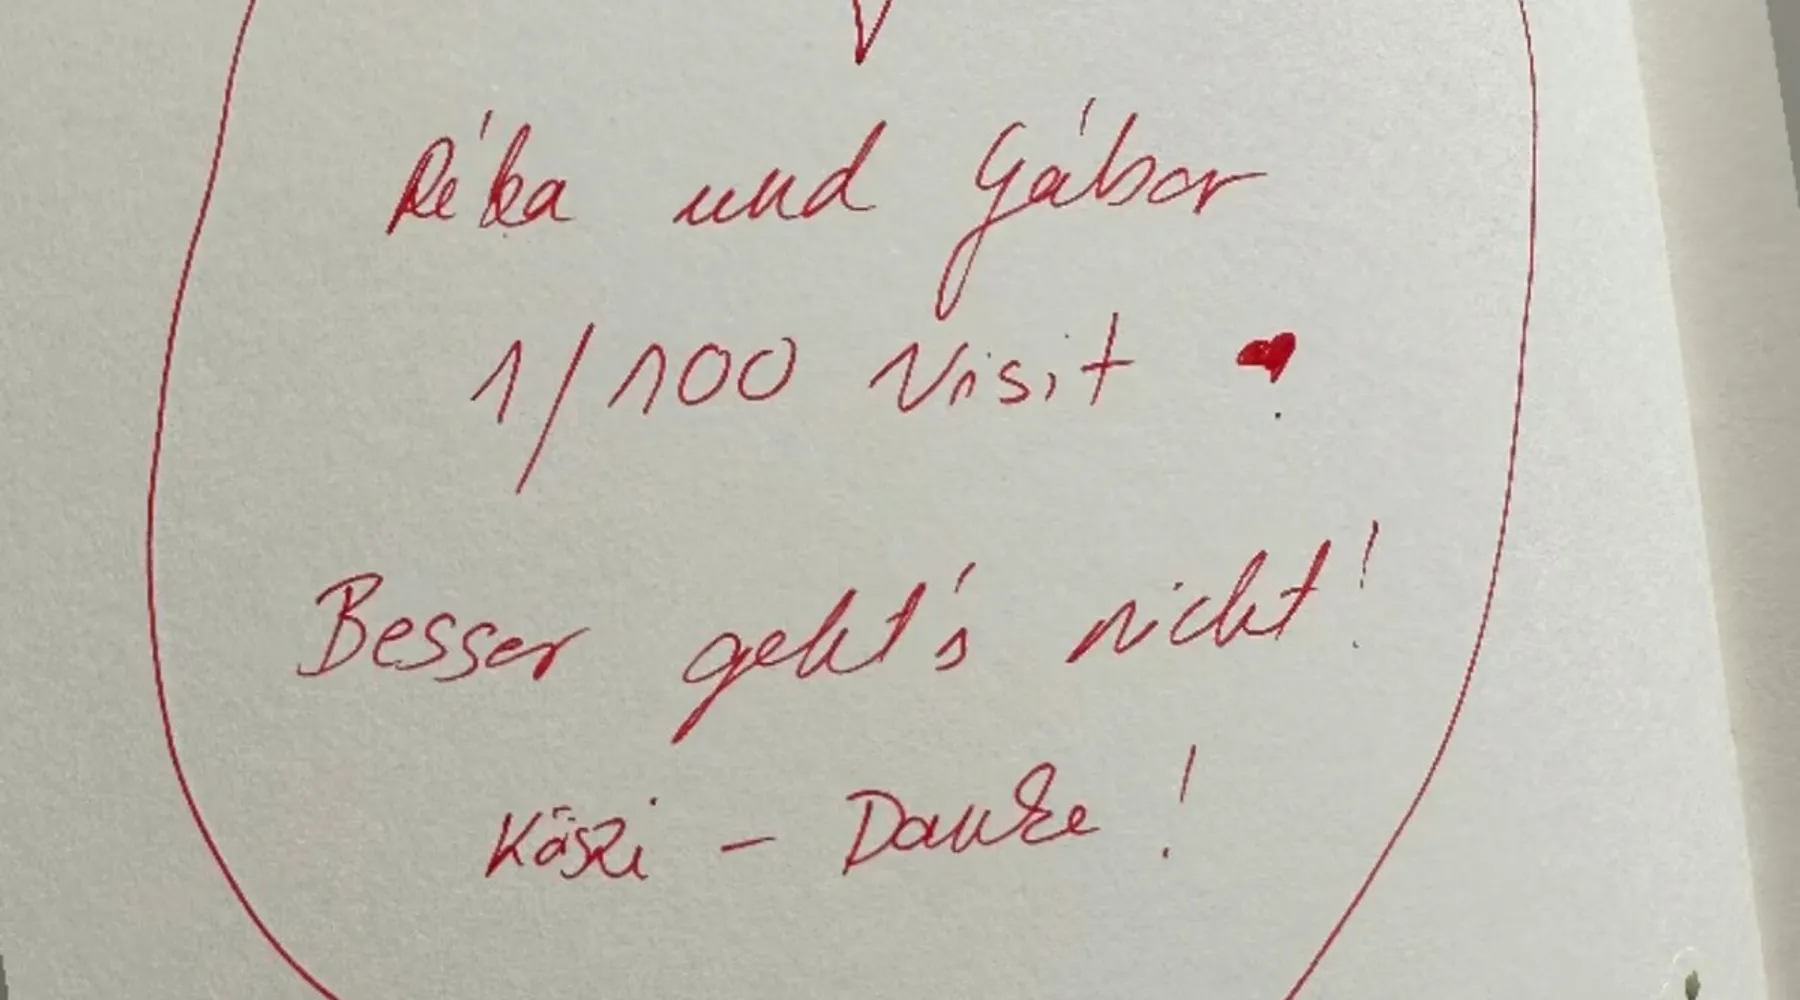 Réka und Gábor
1/100 Visit ♥
Besser geht's nicht!
Köszi – Danke!